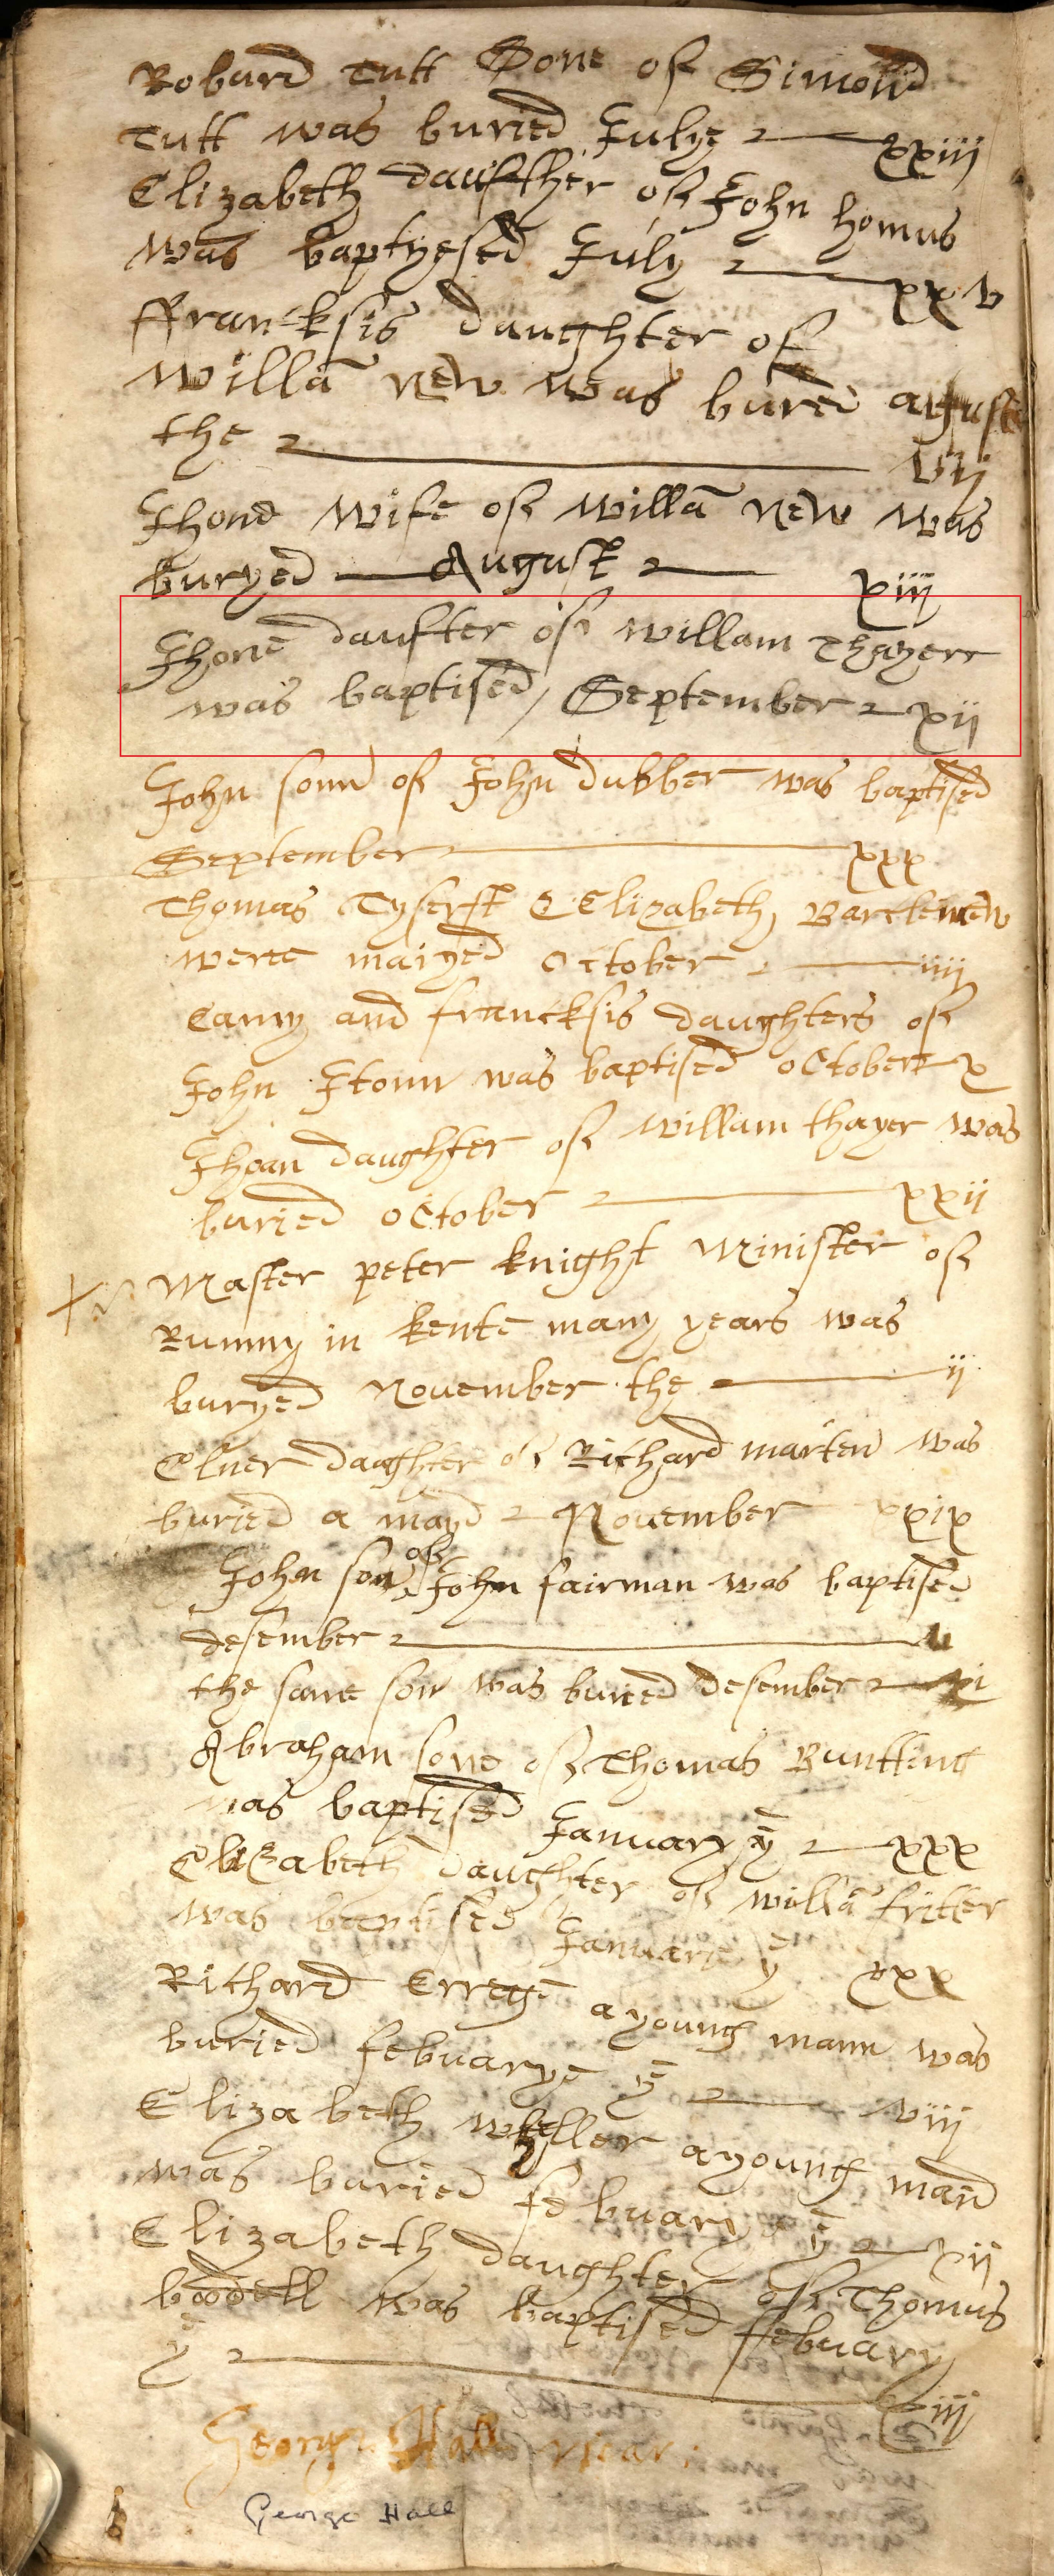 Robard Tutt Sone of Simond
Tutt was buried Julye xxiij
Elizabeth daufther of John homus
was baptyesed July xxv
ffrancksis daughter of
Willã new was bured august
the vij
Jhone wife of Willã new was
buryed August xiij
Jhone daufter of Willam Thayerr
was baptised September xij
John sonn of John dubber was baptised
September xxx
Thomas Tyserst & Elizabeth Bartlemew
were maryed October iiij
and francksis daughters of
John was baptised october x
Jhoan daughter of Willam thayer was
buried october xxij
Master peter knight Minister of
Rumny in kente many years was
buryed November the ij
Elner daaghter of Richard marten was
buried a mayd November xxix
John son of John fairman was baptised
desember
the same son was buried desember xi
Abraham sone of Thomas Buntting
was baptised January ye xxx
Elizabeth daughter of Willã fritter
was baptised Januarie ye xxx
Richard a young mann was
buried februarye ye viij
Elizabeth a young maid
was buried februarye ye xij
Elizabeth daughter of Thomus
boodell was baptised february
ye xiij
George Hall vicar
George Hall